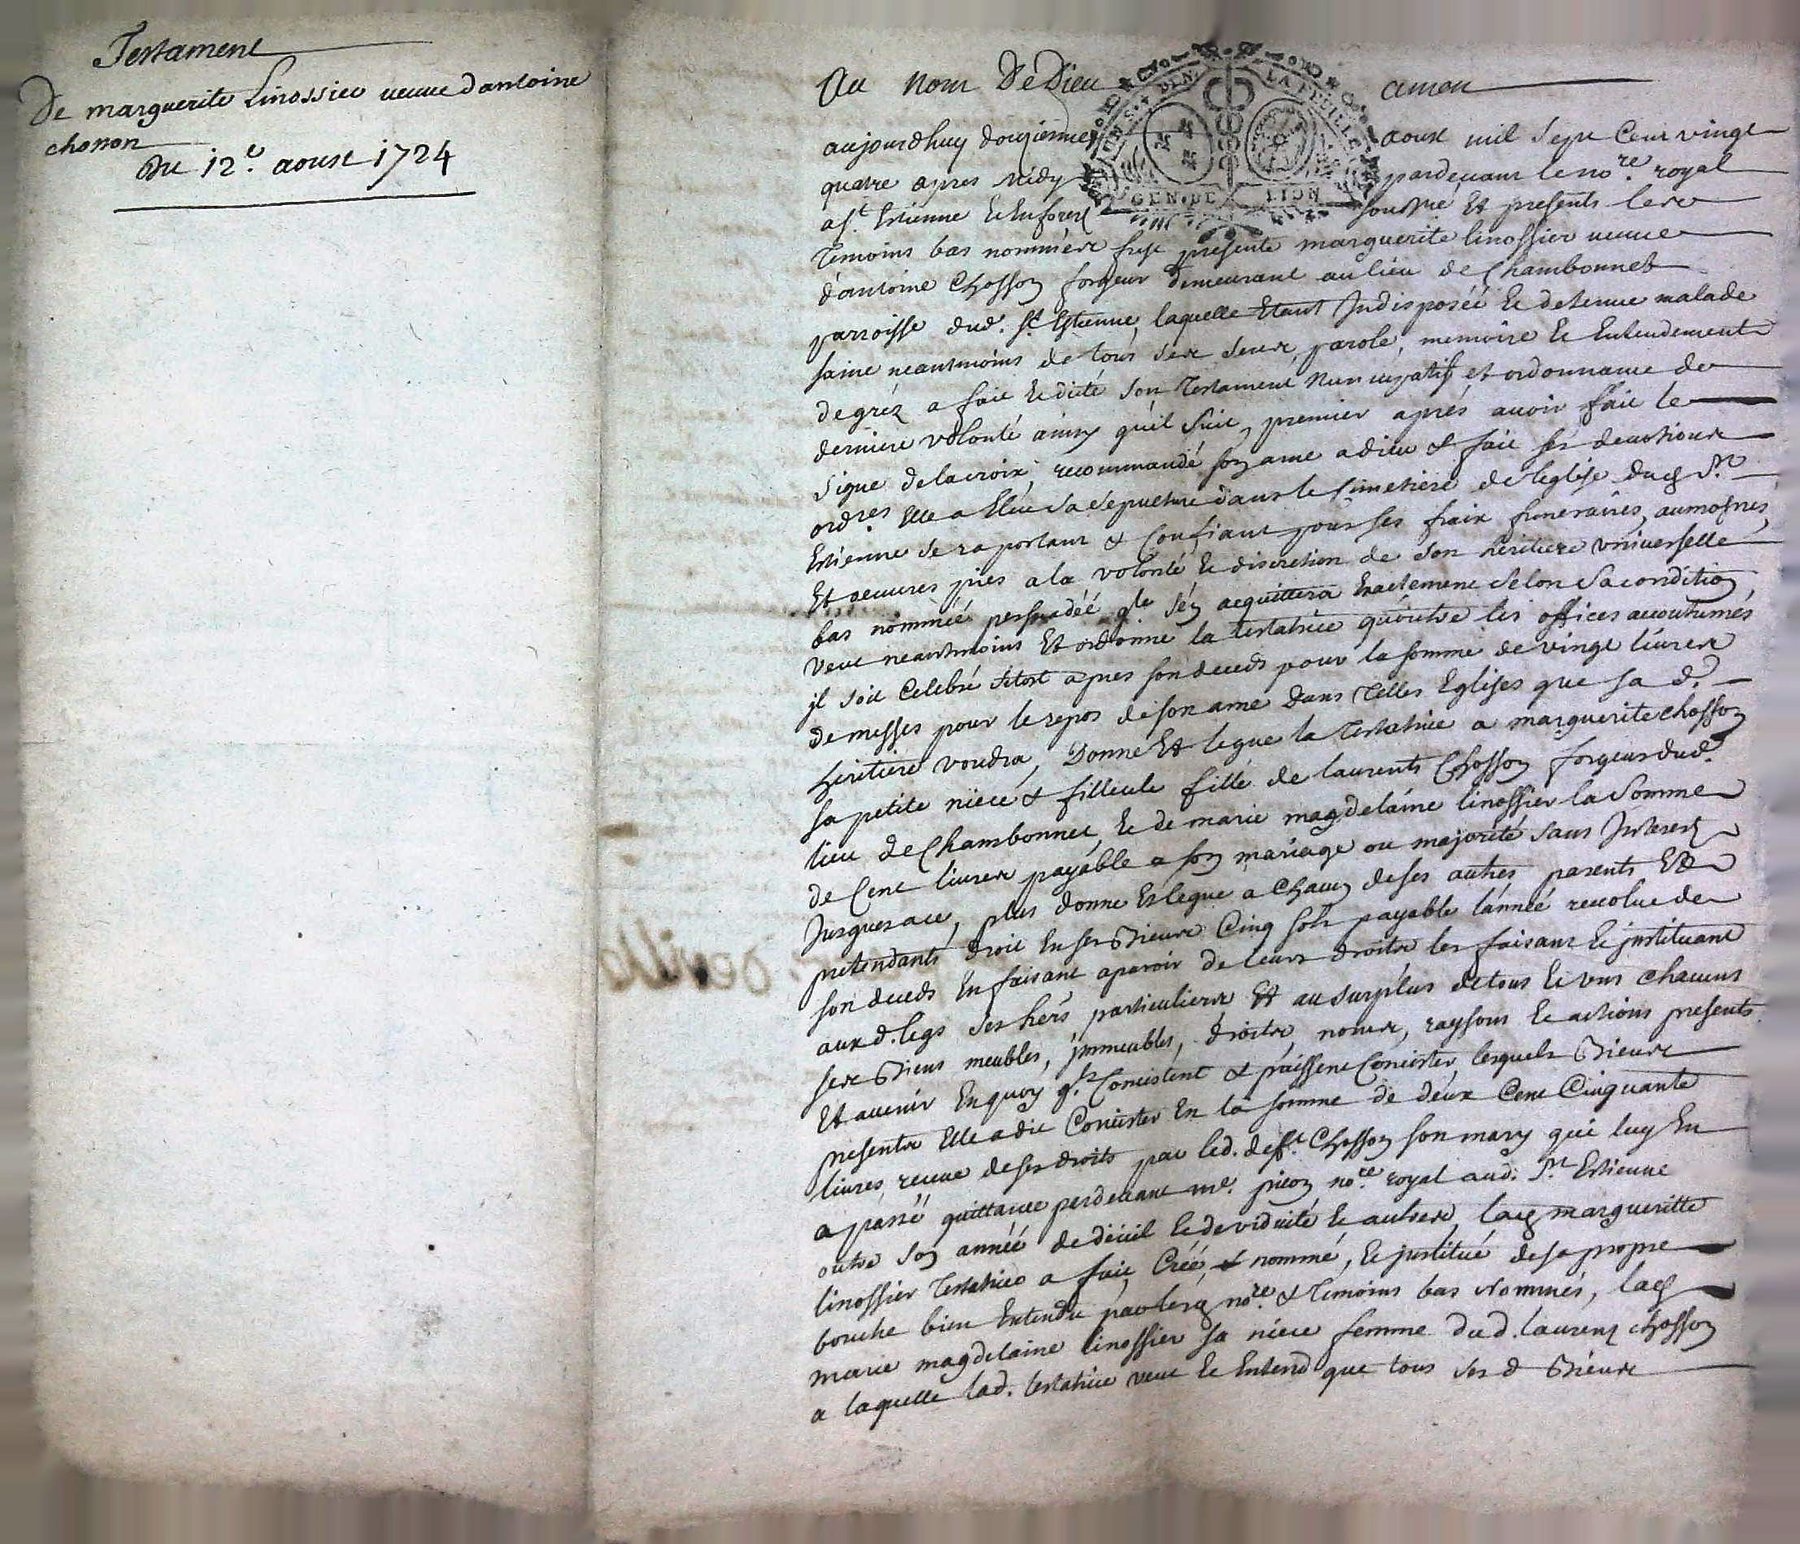 Testament
De marguerite Linossier veuve dantoine
chosson
Du 12.e aoust 1724
Au Nom De Dieu amen
aujourdhuy douzieme aoust mil sept Cent vingt
quatre apres midy pardevant le no.re royal
a S.t Estienne en forez soussigné Et presents les
Temoins bas nommés fust presente marguerite linossier veuve
d'antoine Chosson forgeur demeurant au lieu de Chambonnet
parroisse dud. S.t Estienne, laquelle Etant Indisposée et detenue malade
saine neantmoins de tous ses sens, parole, memoire et Entendement
de gréz a fait et dicté son Testament Nuncupatif et ordonnance de
derniere volonté ainsy qu'il suit, premier aprés avoir fait le
signe de la croix, recommandé son ame a dieu & fait ses devotions
ord.res Elle a Eleu sa sepulture dans le Simetiere de leglise dud S.t
Estienne se raportant & Confiant pour ses fraix funeraires, aumosnes,
Et oeuvres pies a la volonté et discretion de son heritiere universelle
bas nommée persuadée q.le s'en acquittera Exactement selon sa condition
veut neantmoins Et ordonne la testatrice qu'outre les offices accoutumés
il soit Celebré sitost apres son deceds pour la somme de vingt livres
de messes pour le repos de son ame dans Telles Eglises que sa d.
heritiere voudra, Donne Et legue la Testatrice a marguerite chosson
sa petite niece & filleule fille de laurents Chosson forgeur dud.
lieu de Chambonnet, et de marie magdelaine linossier la Somme
de Cent livres payable a son mariage ou majorité sans Interest
Jusques a ce, plus donne Et legue a Chacun de ses autres parents Et
pretendants droit En ses Biens Cinq sols payable l'année revolue de
son deceds En faisant aparoir de leurs droits les faisant et instituant
aux d. legs ses hers particuliers Et au surplus de tous et uns chacuns
ses Biens meubles, immeubles, droits, noms, raysons et actions presents
Et avenir En quoy q.ls Consistent & puissent Consister, lesquels Biens
presents Elle a dit Consister En la somme de deux Cent Cinquante
livres receue de ses droits par led. deff.t Chosson son mary qui luy En
a passé quittance pardevant me. no.re royal aud. S.t Estienne
outre son année de deuil et de viduité et autres, lad marguerite
linossier Testatrice a fait, Créé, & nommé, et institué de sa propre
bouche bien Entendu par led no.re & Temoins bas Nommés, lad
marie magdelaine linossier sa niece femme dud. laurens chosson
a laquelle lad. testatrice veut et Entend que tous ses d Biens